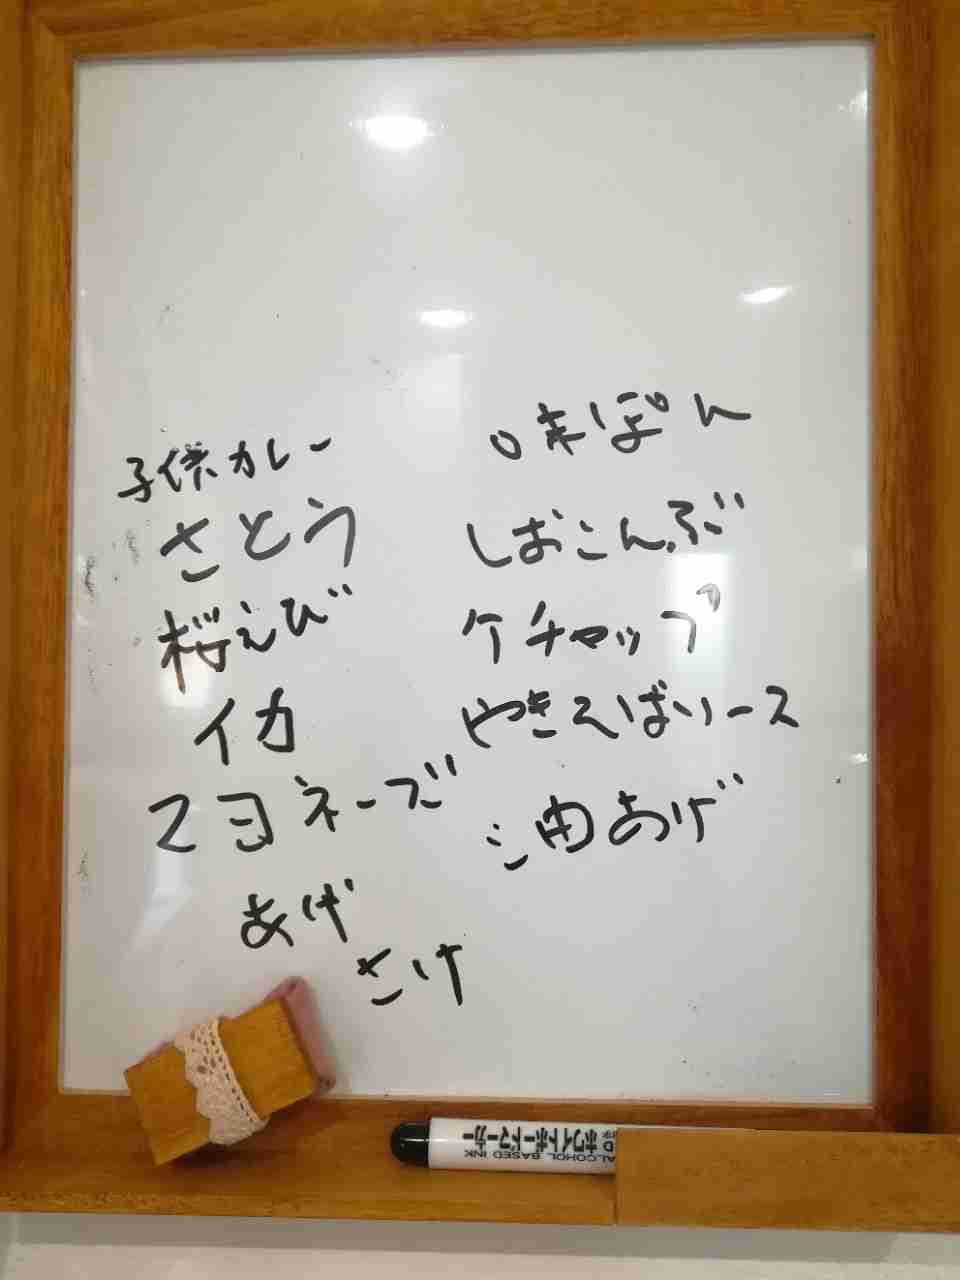 子供カレー
さとう
桜えび
イカ
マヨネーズ
あげ
さけ
味ぽん
しおこんぶ
ケチャップ
やきそばソース
油あげ
ホワイトボードマーカー
ALCOHOL BASED INK